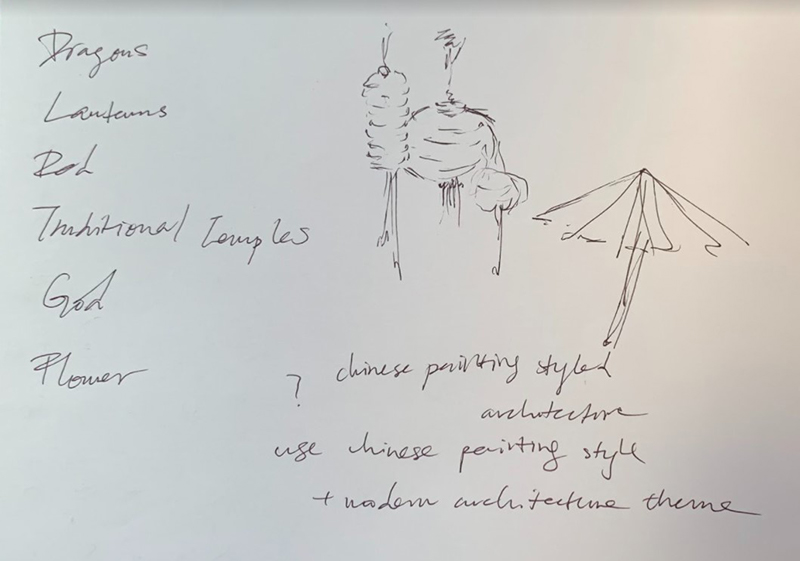 Dragons
Lanterns
Red
Traditional Temples
God
Flower
? chinese painting styled
architecture
use chinese painting style
+ modern architecture theme